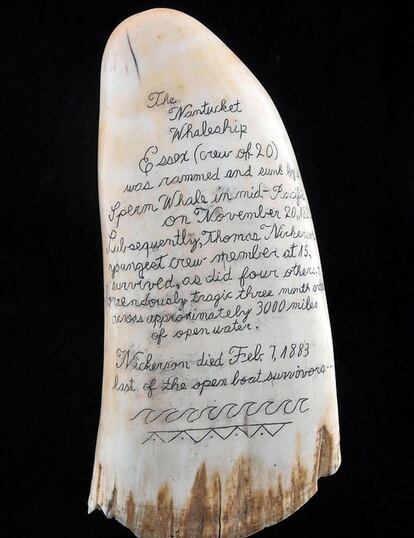 The
Nantucket
Whaleship
Essex (crew of 20)
was rammed and sunk by a
Sperm Whale in mid-Pacific
on November 20, 18
Subsequently, Thomas Nickerson
youngest crew member at 15,
survived, as did four others,
horrendously tragic three month
across approximately 3000 miles
of open water.
Nickerson died Feb. 7, 1883
last of the open boat survivors...